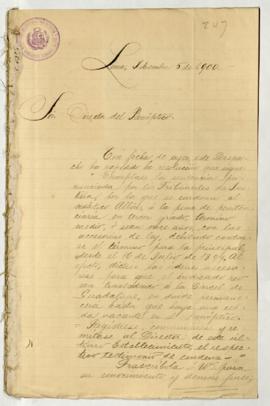 247
Lima, Diciembre 5 de 1900.
Sor. Director del Panóptico.
Con fecha de ayer, este Despa-
cho ha expedido la resolucion que sigue:
"Cúmplase la sentencia pro-
nunciada por los Tribunales de Jus-
ticia, por la que se condena al
asiático Albi, á la pena de peniten-
ciaria en tercer grado, término
medio, ó sean once años, con las
accesorias de ley, debiendo contar-
se el término para la principal,
desde el 16 de Julio de 1894. Al
efecto, díctese las órdenes necesa-
rias para que el indicado reo
sea trasladado á la Cárcel de
Guadalupe, en donde permane-
cerá hasta que haya una cel-
da vacante en el Panóptico.
Regístrese, comuníquese y re-
mítase al Director de este úl-
timo Establecimiento, el respec-
tivo testimonio de condena."
Trascríbola á U. para
su conocimiento y demas fines,